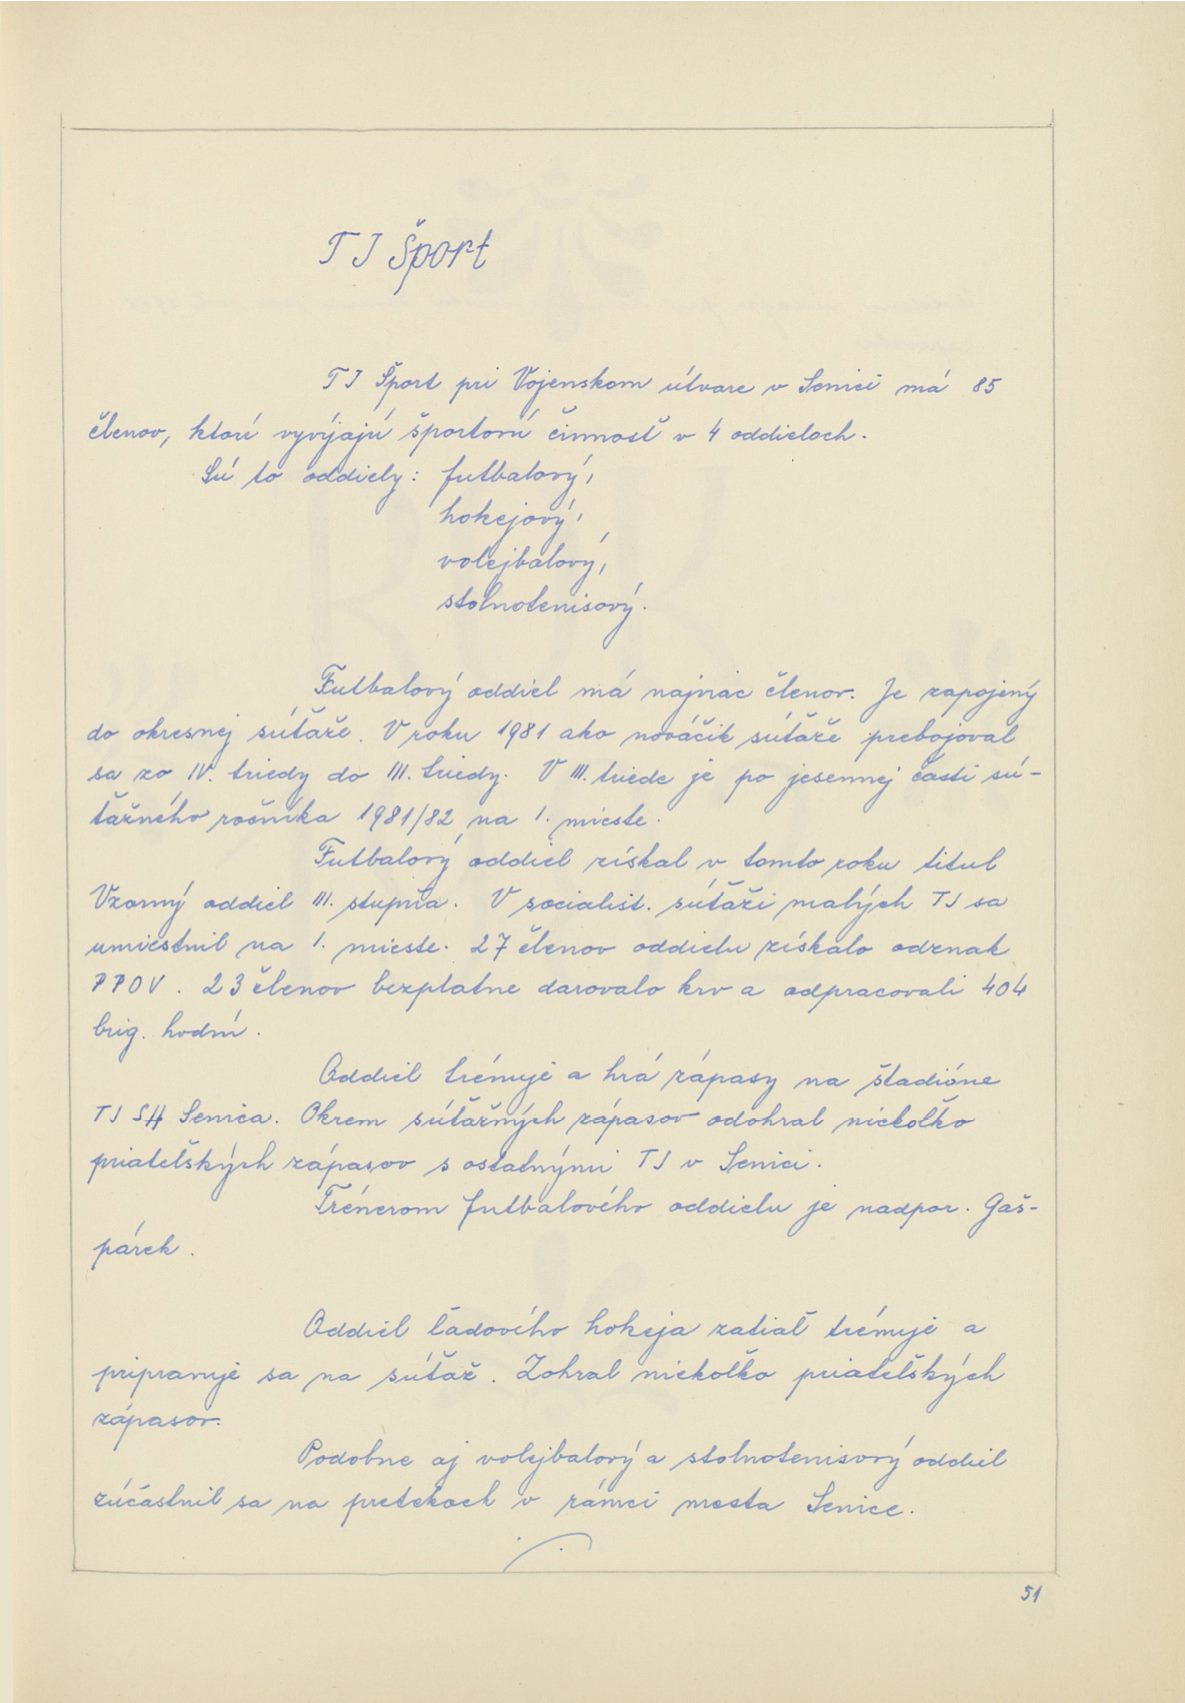 TJ Šport
TJ Šport pri Vojenskom útvare v Senici má 85
členov, ktorí vyvýjajú športovú činnosť v 4 oddieloch.
Sú to oddiely: futbalový,
hokejový,
volejbalový,
stolnotenisový.
Futbalový oddiel má najviac členov. Je zapojený
do okresnej súťaže. V roku 1981 ako nováčik súťaže prebojoval
sa zo IV. triedy do III. triedy. V III. triede je po jesennej časti sú-
ťažného ročníka 1981/82 na 1. mieste.
Futbalový oddiel získal v tomto roku titul
Vzorný oddiel III. stupňa. V socialist. súťaži malých TJ sa
umiestnil na 1. mieste. 27 členov oddielu získalo odznak
PPOV. 23 členov bezplatne darovalo krv a odpracovali 404
brig. hodín.
Oddiel trénuje a hrá zápasy na štadióne
TJ SH Senica. Okrem súťažných zápasov odohral niekoľko
priateľských zápasov s ostatnými TJ v Senici.
Trénerom futbalového oddielu je nadpor. Gaš-
párek.
Oddiel ľadového hokeja zatiaľ trénuje a
pripravuje sa na súťaž. Zohral niekoľko priateľských
zápasov.
Podobne aj volejbalový a stolnotenisový oddiel
zúčastnil sa na pretekoch v rámci mesta Senice.
51